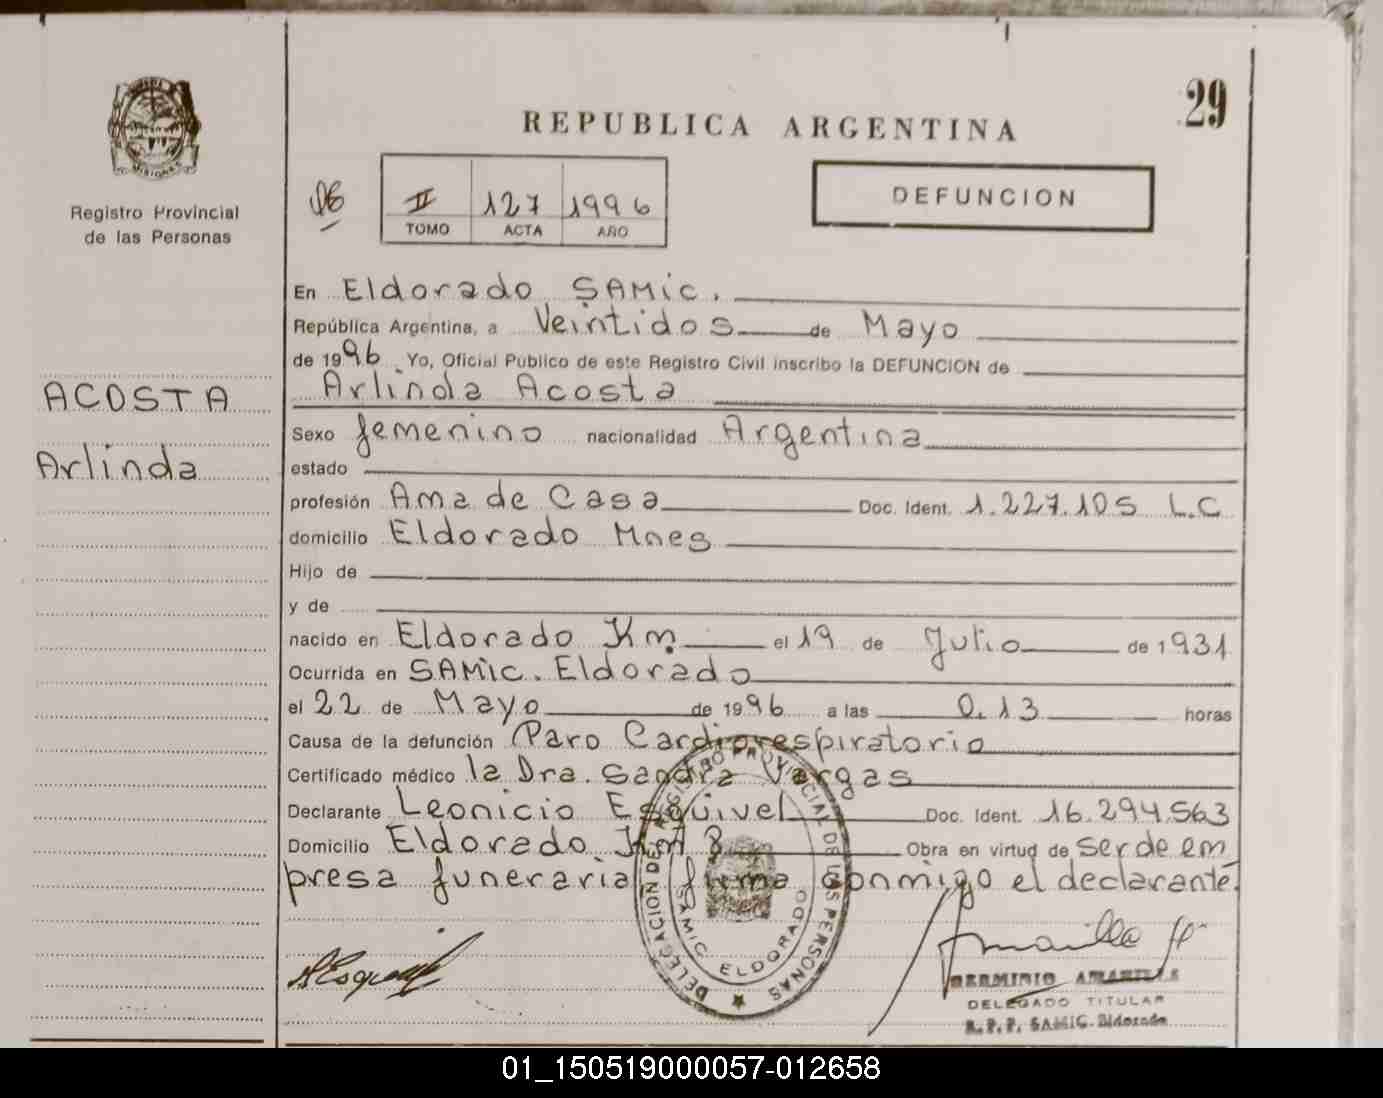 29
REPUBLICA ARGENTINA
DEFUNCION
II 127 1996
TOMO ACTA AÑO
MISIONES
Registro Provincial
de las Personas
ACOSTA
Arlinda
En Eldorado SAMic.
República Argentina, a Veintidos de Mayo
de 1996 Yo, Oficial Publico de este Registro Civil inscribo la DEFUNCION de
Arlinda Acosta
Sexo femenino nacionalidad Argentina
estado
profesión Ama de Casa Doc. Ident. 1.227.105 L.C
domicilio Eldorado Mnes
Hijo de
y de
nacido en Eldorado Km. el 19 de Julio de 1931
Ocurrida en SAMic. Eldorado
el 22 de Mayo de 1996 a las 0.13 horas
Causa de la defunción Paro Cardiorespiratorio
Certificado médico la Dra. Sandra Vargas
Declarante Leonicio Esquivel Doc. Ident. 16.294.563
Domicilio Eldorado Km 8 Obra en virtud de ser de em
presa funeraria firma conmigo el declarante.
DELEGACION DE REGISTRO PROVINCIAL DE LAS PERSONAS
SAMIC ELDORADO
HERMINIO AMARILLA
DELEGADO TITULAR
R.P.P. SAMIC. Eldorado
01_150519000057-012658